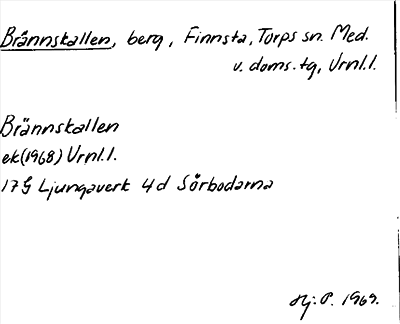 Brännskallen, berg, Finnsta, Torps sn. Med.
v. doms. tg, Vrnl.l.
Brännskallen
ek(1968) Vrnl.l.
17G Ljungaverk 4d Sörbodarna
Hj. P. 1969.